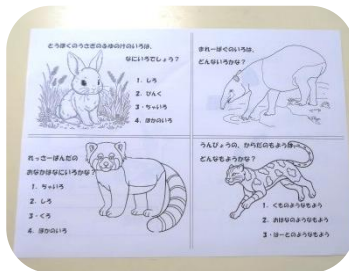 とうほくのうさぎのふゆのけのいろは、
なにいろでしょう？
1. しろ
2. ぴんく
3・ちゃいろ
4. ほかのいろ
まれーばくのいろは、
どんないろかな？
れっさーぱんだの
おなかはなにいろかな？
1. ちゃいろ
2. しろ
3・くろ
4. ほかのいろ
うんぴょうの、からだのもようは、
どんなもようかな？
1. くものようなもよう
2. おはなのようなもよう
3・はーとのようなもよう